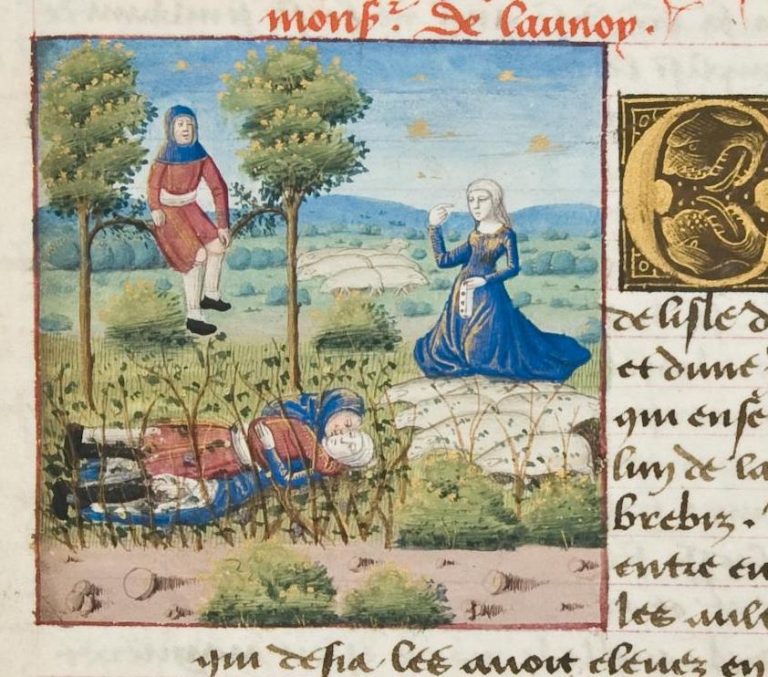 monsr. de launoy.
de lisle d
et dune
qui ense
luy de la
brebiz.
entre en
les aul
qui desia les auoit eleuez en